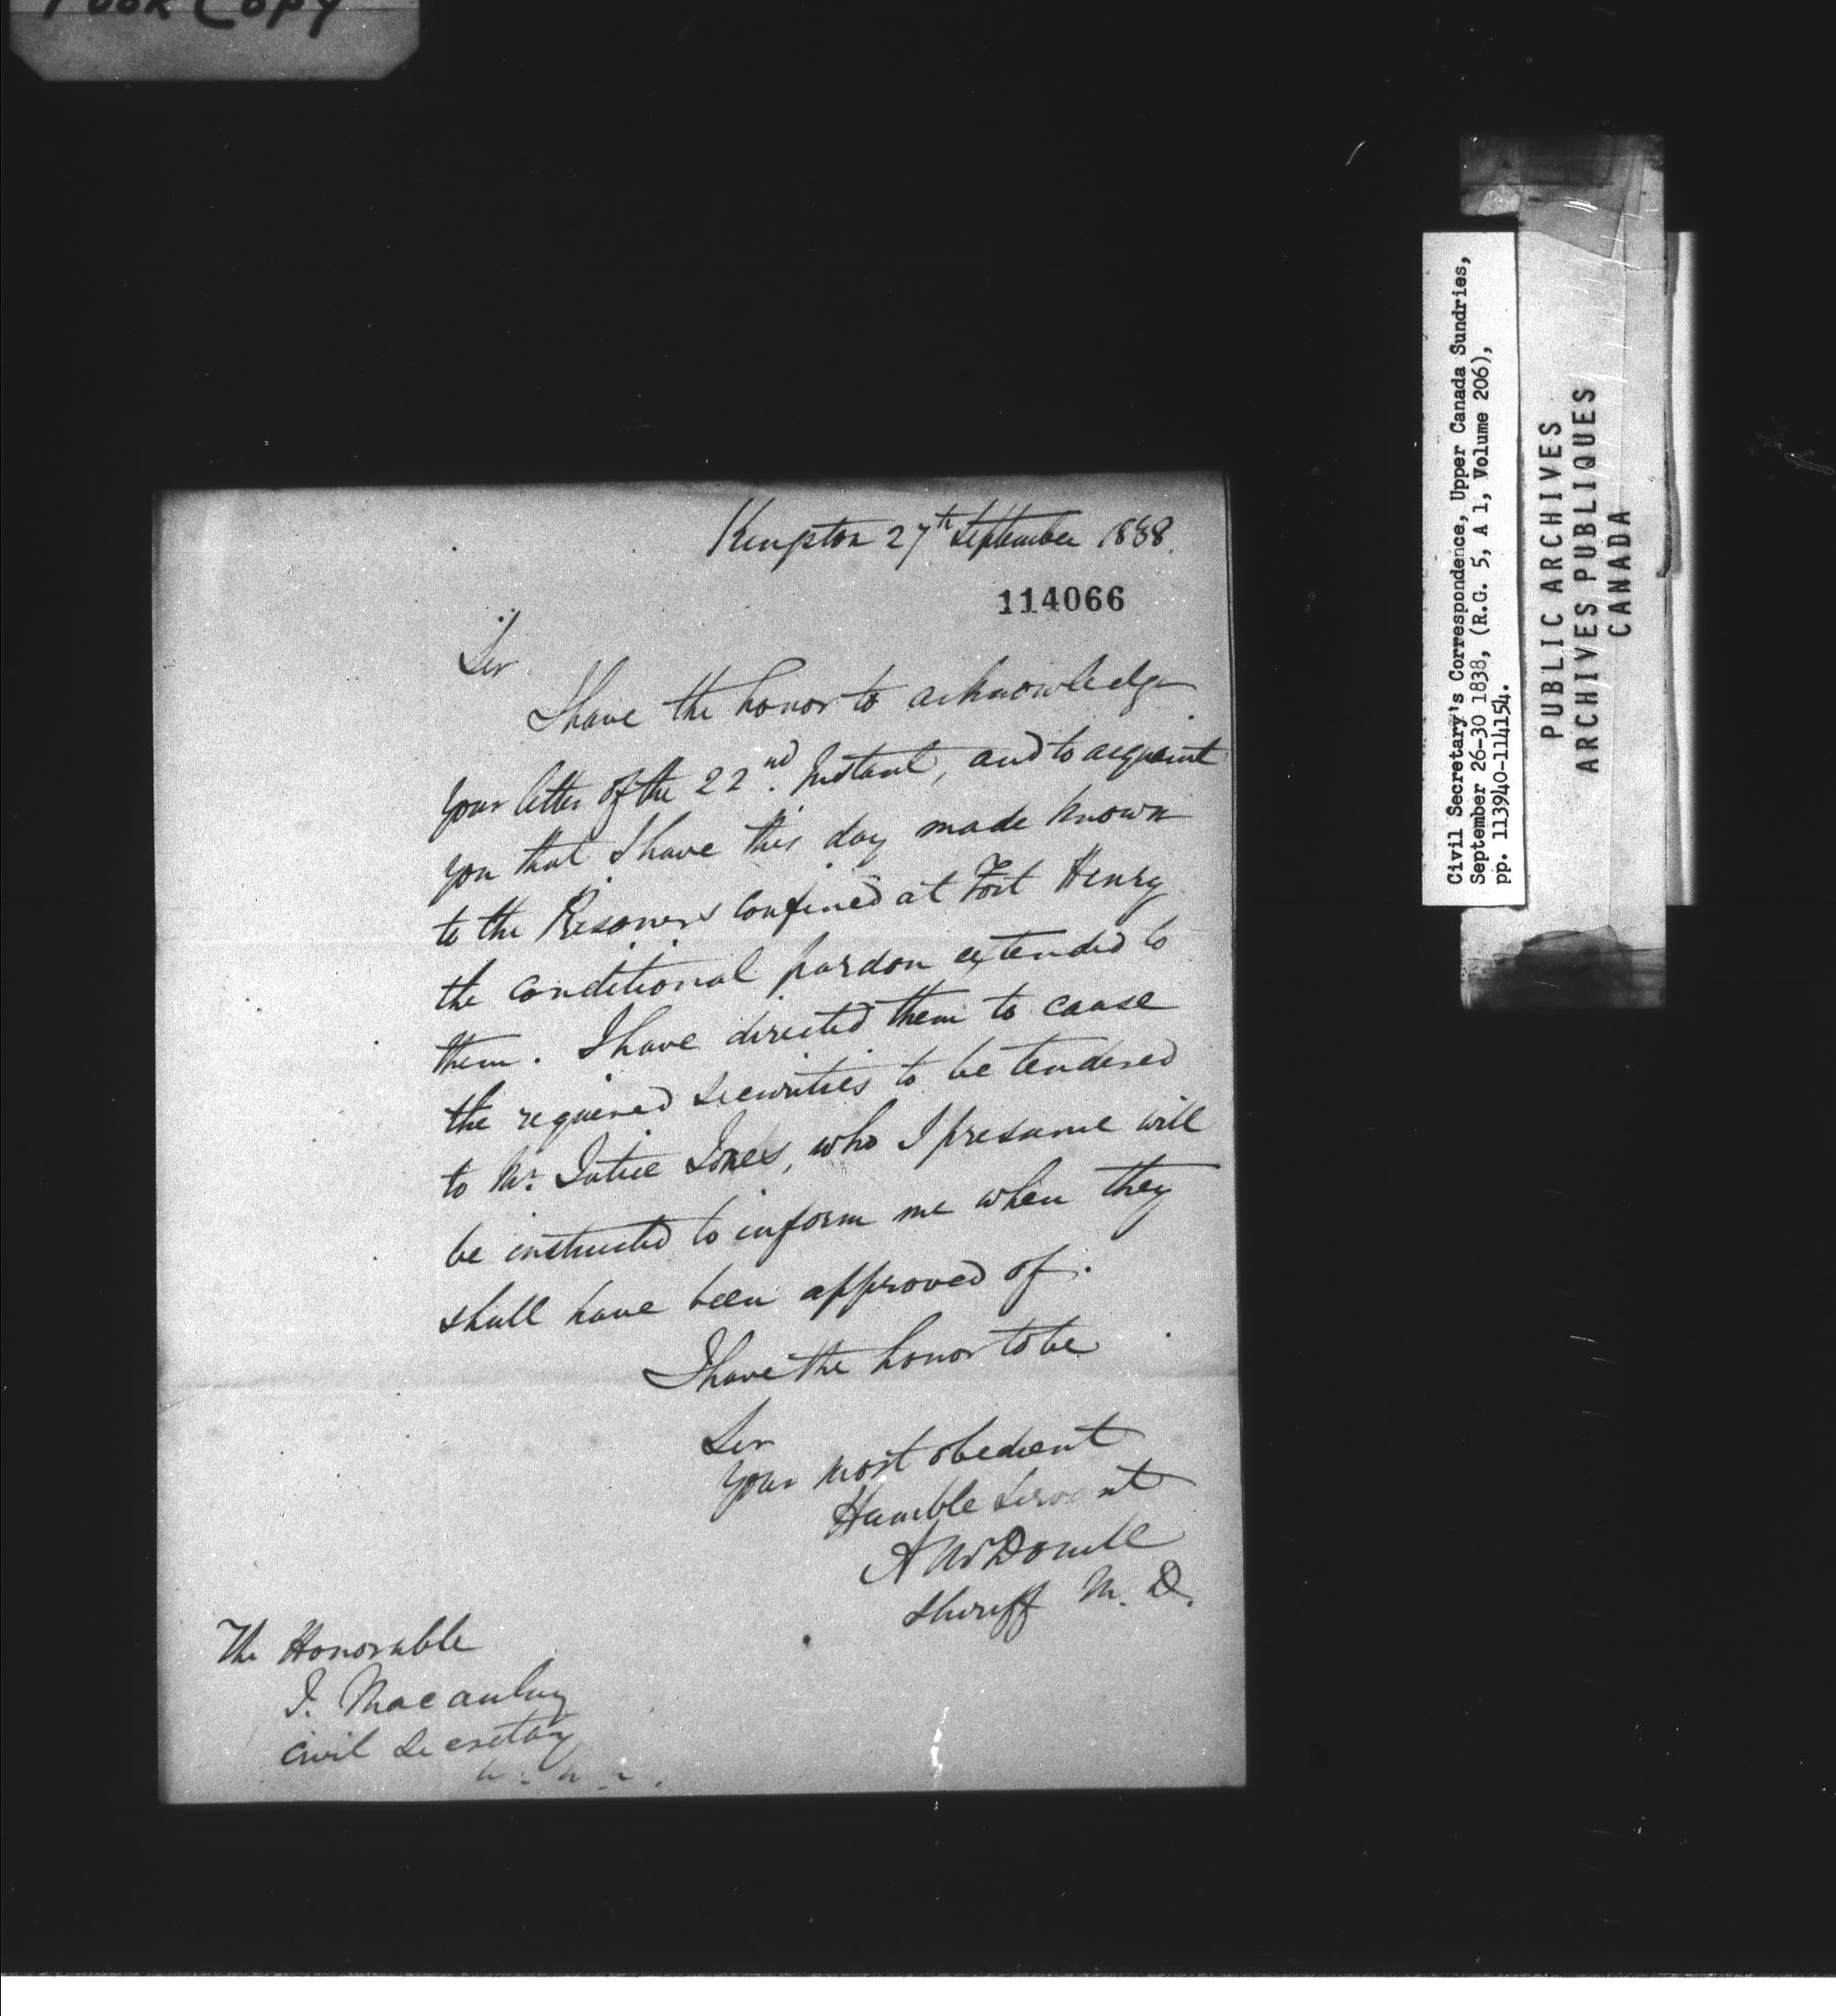 Poor Copy
Kingston 27th September 1838.
114066
Sir
I have the honor to acknowledge
your letter of the 22nd. Instant, and to acquaint
you that I have this day made known
to the Prisoners confined at Fort Henry
the conditional pardon extended to
them. I have directed them to cause
the required securities to be tendered
to Mr. Justice Jones, who I presume will
be instructed to inform me when they
shall have been approved of.
I have the honor to be
Sir
Your most obedient
Humble Servant
A McDonell
Sheriff M. D.
The Honorable
J. Macaulay
Civil Secretary
Civil Secretary's Correspondence, Upper Canada Sundries,
September 26-30 1838, (R.G. 5, A 1, Volume 206),
pp. 113940-114154.
PUBLIC ARCHIVES
ARCHIVES PUBLIQUES
CANADA